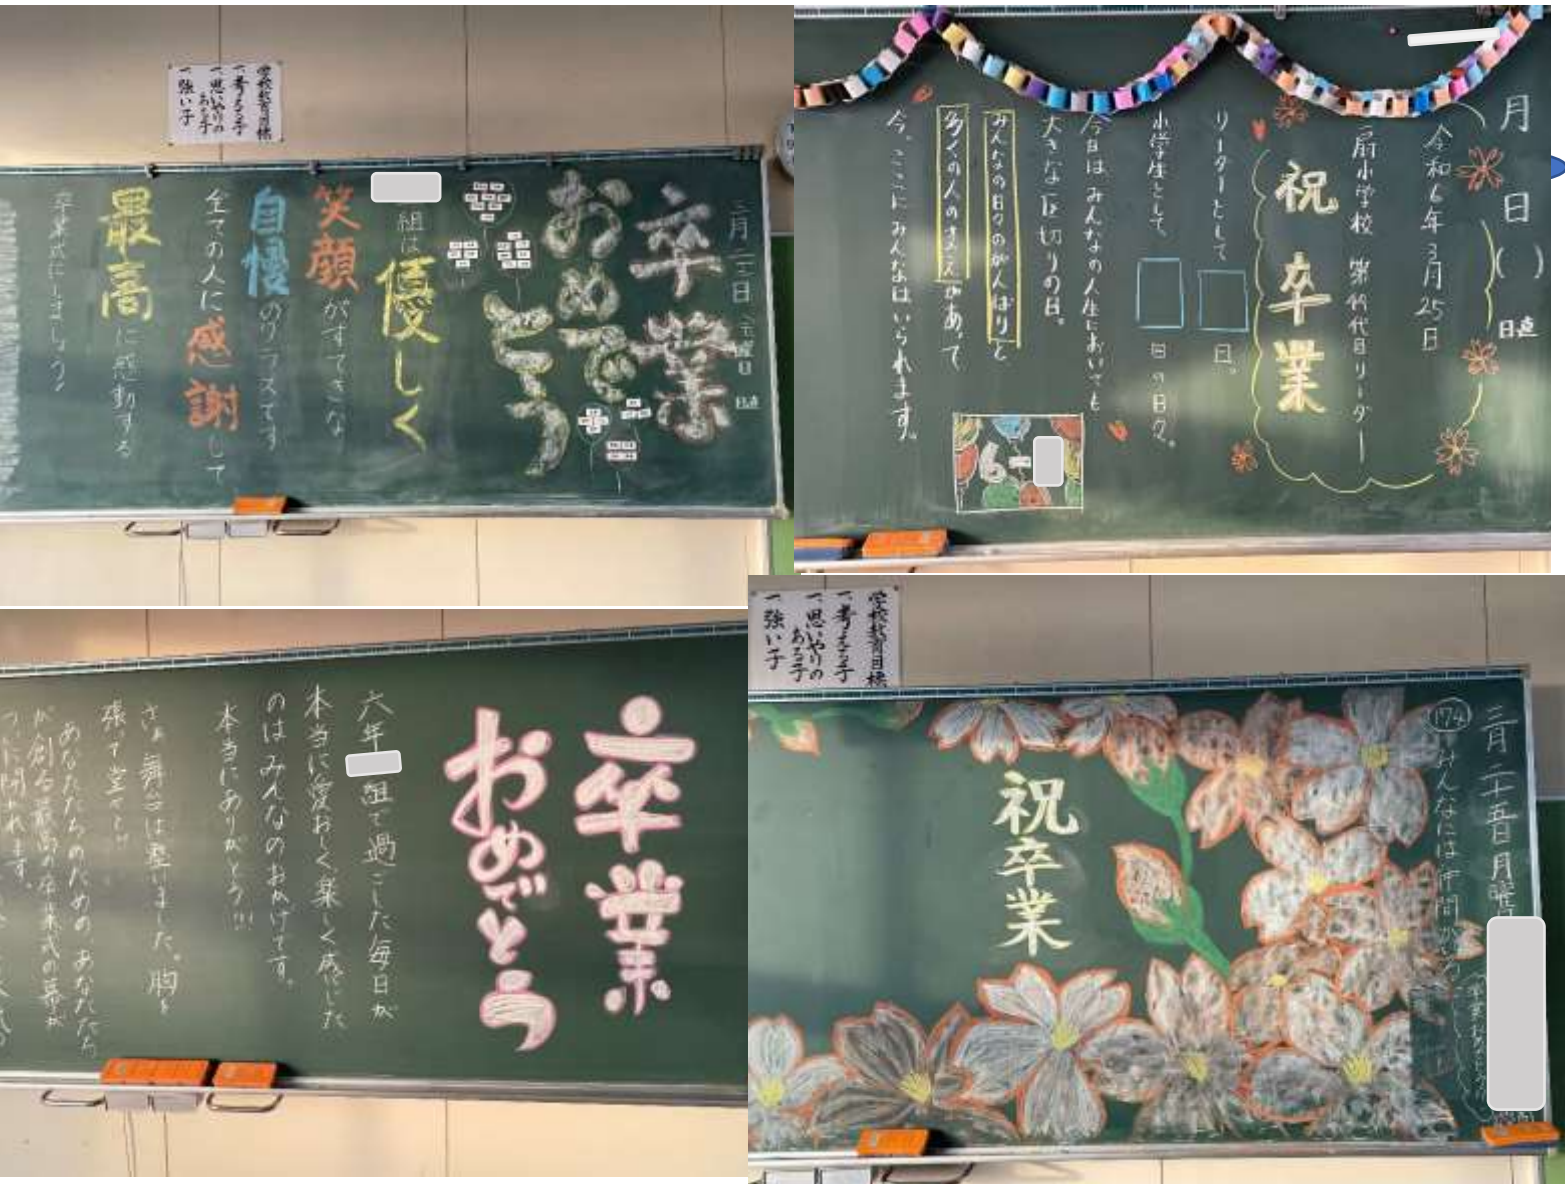 学校教育目標
一、考える子
一、思いやりの
ある子
一、強い子
卒業
おめで
とう
組は優しく
笑顔がすてきな
自慢のクラスです
全ての人に感謝して
最高に感動する
卒業式にしましょう!
月 日( ) 日直
令和6年3月25日
扇小学校 第 代目リーダー
祝 卒業
リーダーとして 日。
小学生として、 日の日々。
今日はみんなの人生においても
大きな区切りの日。
みんなの日々のがんばりと
多くの人の支えがあって
今、ここにみんなはいられます。
6-
卒業
おめでとう
六年 組で過ごした毎日が
本当に愛おしく楽しく感じた
のはみんなのおかげです。
本当にありがとう!!!
さあ舞台は整いました。胸を
張って堂々と!!
あなたたちのための、あなたたち
が創る最高の卒業式の幕が
学校教育目標
一、考える子
一、思いやりの
ある子
一、強い子
三月二十五日月曜日
174
みんなには仲間が
祝卒業